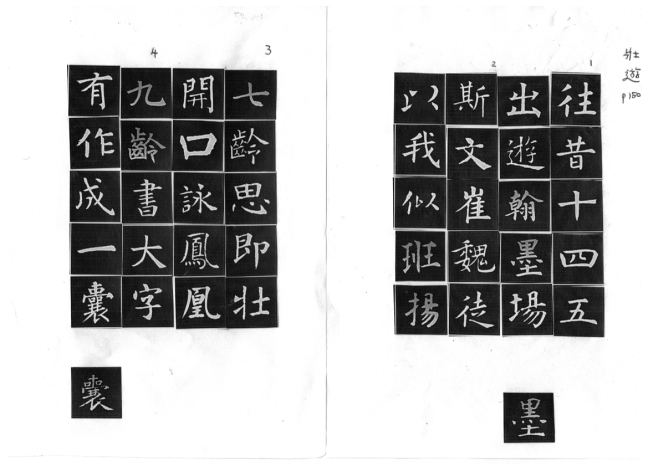 壯
遊
P150
1
往昔十四五
出遊翰墨場
墨
2
斯文崔魏徒
以我似班揚
3
七齡思即壯
開口詠鳳凰
4
九齡書大字
有作成一囊
囊